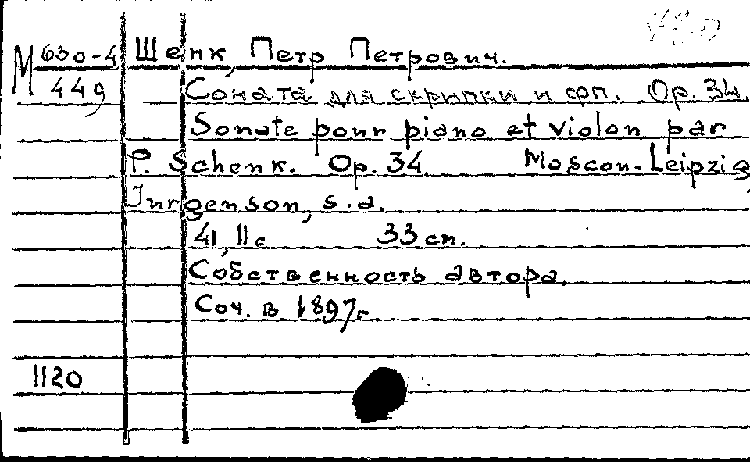 М 630-4 Шенк, Петр Петрович.
449 Соната для скрипки и фп. Op. 34.
Sonate pour piano et violon par
P. Schenk. Op. 34 Moscou-Leipzig,
Jurgenson, s.a.
41, 11 с 33 сп.
Собственность автора.
Соч. в 1897г
1120